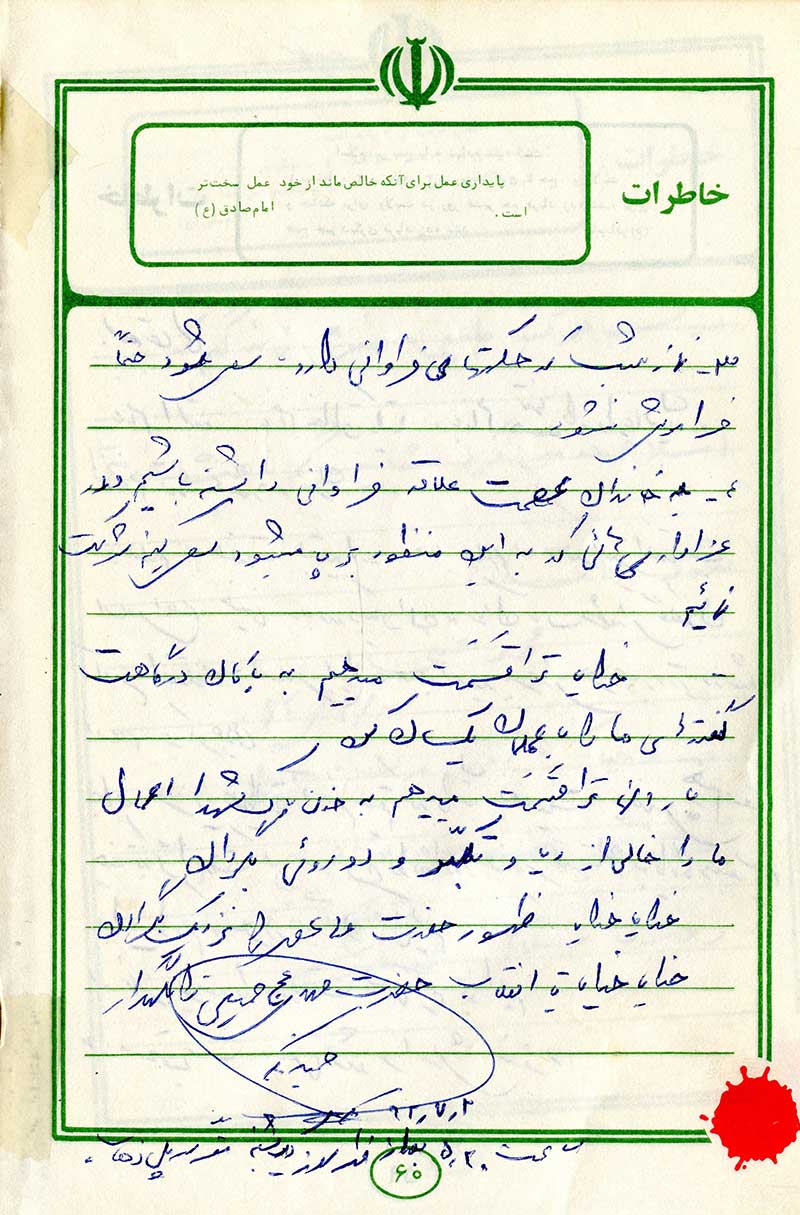 خاطرات
پایداری عمل برای آنکه خالص ماند از خود عمل سخت‌تر
است. امام صادق (ع)
۳ـ نماز شب که حکمتهای فراوانی دارد. سعی شود حتماً
فراموش نشود
۴ـ به خاندان عصمت علاقه فراوانی داشته باشیم و در
عزاداری‌هائی که به این منظور برپا میشود سعی کنیم شرکت
نمائیم
خدایا ترا قسَمَت میدهیم به پاکان درگاهت
گفته‌های ما را با عملمان یکسان کن
بار الها ترا قسمت میدهم به خون شهدا اعمال
ما را خالی از ریا و تکبّر و دوروئی بگردان
خدایا خدایا ظهور حضرت مهدی را نزدیک بگردان
خدایا خدایا تا انقلاب حضرت مهدی عج خمینی را نگهدار
حمید
۶۲٫۷٫۲
ساعت ۵٫۳۰ بعد از ظهر روز شنبه سرپل ذهاب
۶۰